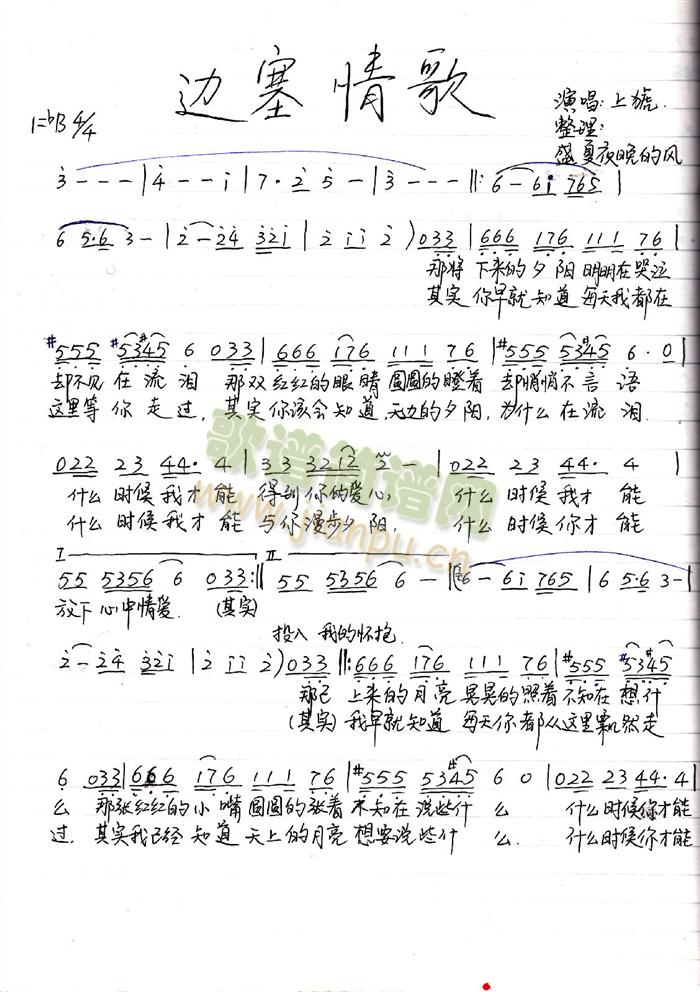 边塞情歌
1=♭B 4/4
演唱:上琥
整理:
盛夏夜晚的风
3 - - - | 4 - - i | 7 · 2 5 - | 3 - - - ‖: 6 - 6i 765 |
6 5·6 3 - | 2 - 24 32i | 2 ii 2 ) 033 | 666 176 111 76 |
那将 下来的夕阳 明明在哭泣
其实 你早就知道 每天我都在
#555 534#5 6 033 | 666 176 111 76 | #555 534#5 6 · 0 |
却不见 在流泪 那双 红红的眼睛 圆圆的瞪着 却悄悄不言语
这里等 你走过, 其实 你该会知道, 无力的夕阳, 为什么在流泪.
022 23 44· 4 | 33 3212 2 - | 022 23 44· 4 |
什么 时候 我才 能 得到 你的爱心, 什么 时候 我才 能
什么 时候 我才 能 与你 漫步夕阳, 什么 时候 你才 能
I II
55 5356 6 033 :‖ 55 5356 6 - | 6 - 6i 765 | 6 5·6 3 - |
放下 心中情爱. (其实)
投入 我的怀抱.
2 - 24 32i | 2 ii 2 ) 033 ‖: 666 176 111 76 | #555 534#5
那已 上来的月亮 晃晃的照着 不知在 想什
(其实) 我早就知道 每天你都从这里 走
6 033 | 666 176 111 76 | #555 534#5 6 0 | 022 23 44· 4
么 那张 红红的小嘴 圆圆的张着 不知在 说些什 么 什么时候 你才能
过. 其实 我已经知道 天上的月亮 想要说些什 么. 什么时候 你才能
歌谱简谱网
www.jianpu.cn